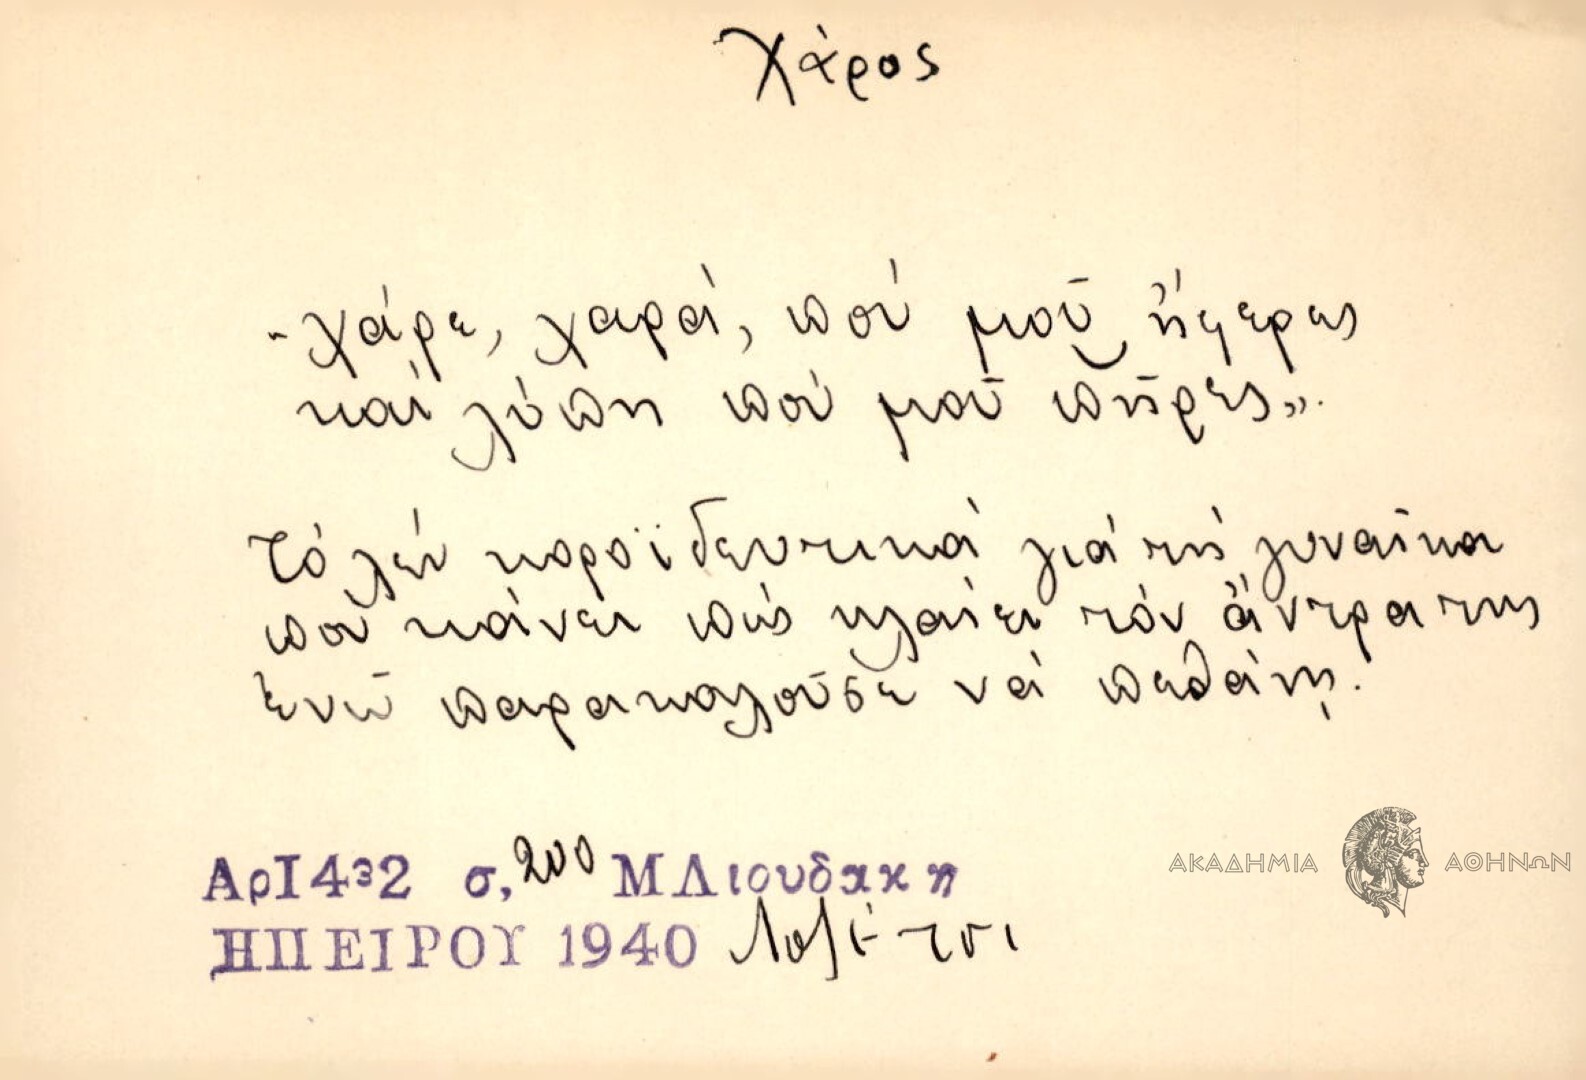 Χάρος
"Χάρε, χαρά, πού μοῦ ἤφερες
καί λύπη πού μοῦ πῆρες".
Τό λέν κοροϊδευτικά γιά τή γυναῖκα
πού κάνει πώς κλαίει τόν ἄντρα της
ἐνῶ παρακαλοῦσε νά πεθάνῃ.
Αρ1432 σ. 200 Μ Λιουδακη
ΗΠΕΙΡΟΥ 1940
ΑΚΑΔΗΜΙΑ ΑΘΗΝΩΝ